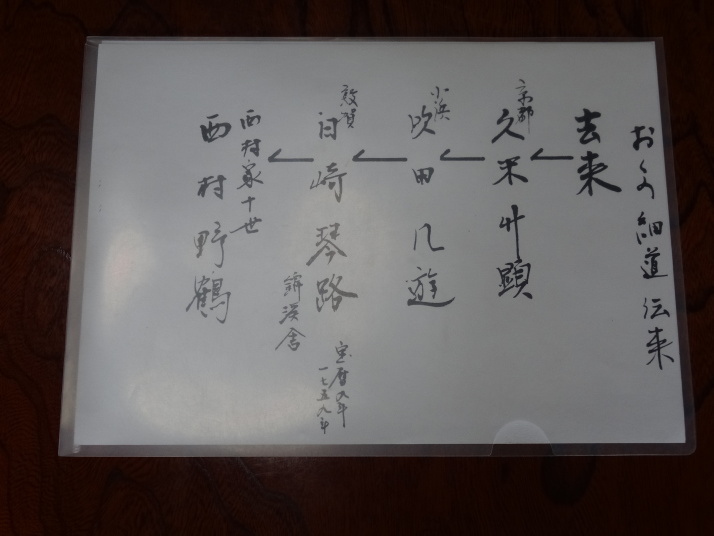 おくの細道伝来
去来
京都
久米升顕
小浜
吹田几遊
敦賀
白崎琴路
宝暦九年
一七五九年
錦渓舎
西村家十世
西村野鶴